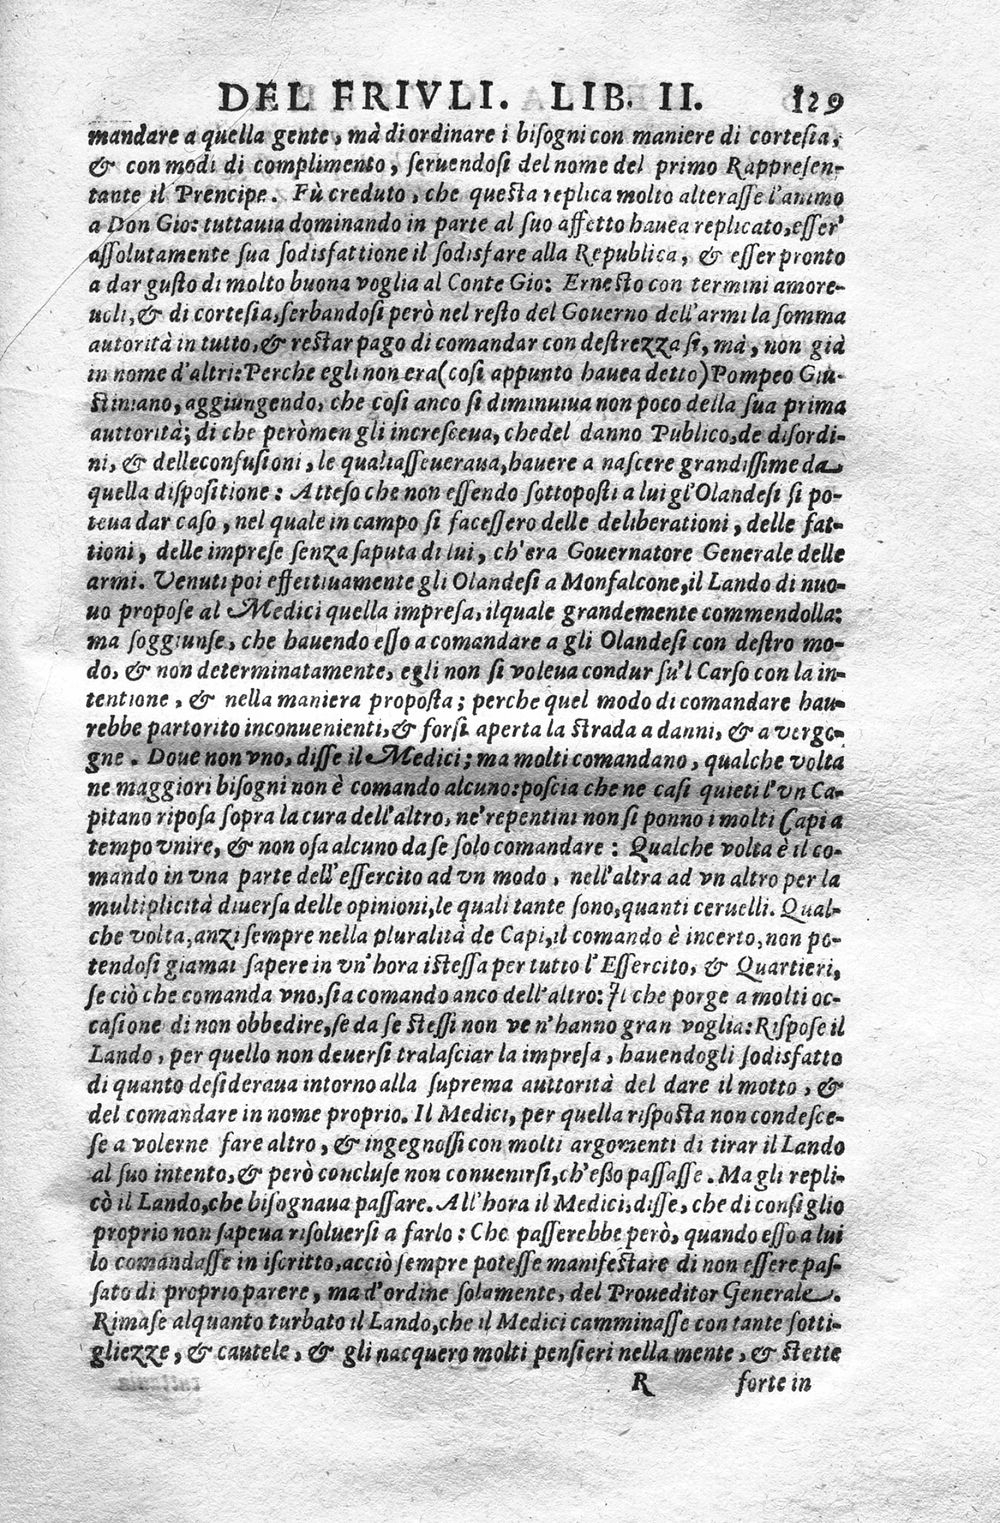 DEL FRIVLI. LIB. II. 129
mandare a quella gente, mà di ordinare i bisogni con maniere di cortesia,
& con modi di complimento, seruendosi del nome del primo Rappresen-
tante il Prencipe. Fù creduto, che questa replica molto alterasse l'animo
a Don Gio: tuttauia dominando in parte al suo affetto hauea replicato, esser'
assolutamente sua sodisfattione il sodisfare alla Republica, & esser pronto
a dar gusto di molto buona voglia al Conte Gio: Ernesto con termini amore-
uoli, & di cortesia, serbandosi però nel resto del Gouerno dell'armi la somma
autorità in tutto, & restar pago di comandar con destrezza sì, mà, non già
in nome d'altri: Perche egli non era (cosi appunto hauea detto) Pompeo Giu-
stiniano, aggiungendo, che cosi anco si diminuiua non poco della sua prima
auttorità; di che però men gli incresceua, che del danno Publico, de disordi-
ni, & delle confusioni, le quali asseueraua, hauere a nascere grandissime da
quella dispositione: Atteso che non essendo sottoposti a lui gl'Olandesi si po-
teua dar caso, nel quale in campo si facessero delle deliberationi, delle fat-
tioni, delle imprese senza saputa di lui, ch'era Gouernatore Generale delle
armi. Venuti poi effettiuamente gli Olandesi a Monfalcone, il Lando di nuo-
uo propose al Medici quella impresa, ilquale grandemente commendolla:
ma soggiunse, che hauendo esso a comandare a gli Olandesi con destro mo-
do, & non determinatamente, egli non si voleua condur su'l Carso con la in-
tentione, & nella maniera proposta; perche quel modo di comandare hau-
rebbe partorito inconuenienti, & forsi aperta la strada a danni, & a vergo-
gne. Doue non vno, disse il Medici; ma molti comandano, qualche volta
ne maggiori bisogni non è comando alcuno: poscia che ne casi quieti l'vn Ca-
pitano riposa sopra la cura dell'altro, ne' repentini non si ponno i molti Capi a
tempo vnire, & non osa alcuno da se solo comandare: Qualche volta è il co-
mando in vna parte dell'essercito ad vn modo, nell'altra ad vn altro per la
multiplicità diuersa delle opinioni, le quali tante sono, quanti ceruelli. Qual-
che volta, anzi sempre nella pluralità de Capi, il comando è incerto, non po-
tendosi giamai sapere in vn'hora istessa per tutto l'Essercito, & Quartieri,
se ciò che comanda vno, sia comando anco dell'altro: Il che porge a molti oc-
casione di non obbedire, se da se stessi non ve n'hanno gran voglia: Rispose il
Lando, per quello non deuersi tralasciar la impresa, hauendogli sodisfatto
di quanto desideraua intorno alla suprema auttorità del dare il motto, &
del comandare in nome proprio. Il Medici, per quella risposta non condesce-
se a volerne fare altro, & ingegnossi con molti argomenti di tirar il Lando
al suo intento, & però concluse non conuenirsi, ch'esso passasse. Ma gli repli-
cò il Lando, che bisognaua passare. All'hora il Medici, disse, che di consiglio
proprio non sapeua risoluersi a farlo: Che passerebbe però, quando esso a lui
lo comandasse in iscritto, acciò sempre potesse manifestare di non essere pas-
sato di proprio parere, ma d'ordine solamente, del Proueditor Generale.
Rimase alquanto turbato il Lando, che il Medici camminasse con tante sotti-
gliezze, & cautele, & gli nacquero molti pensieri nella mente, & stette
R forte in